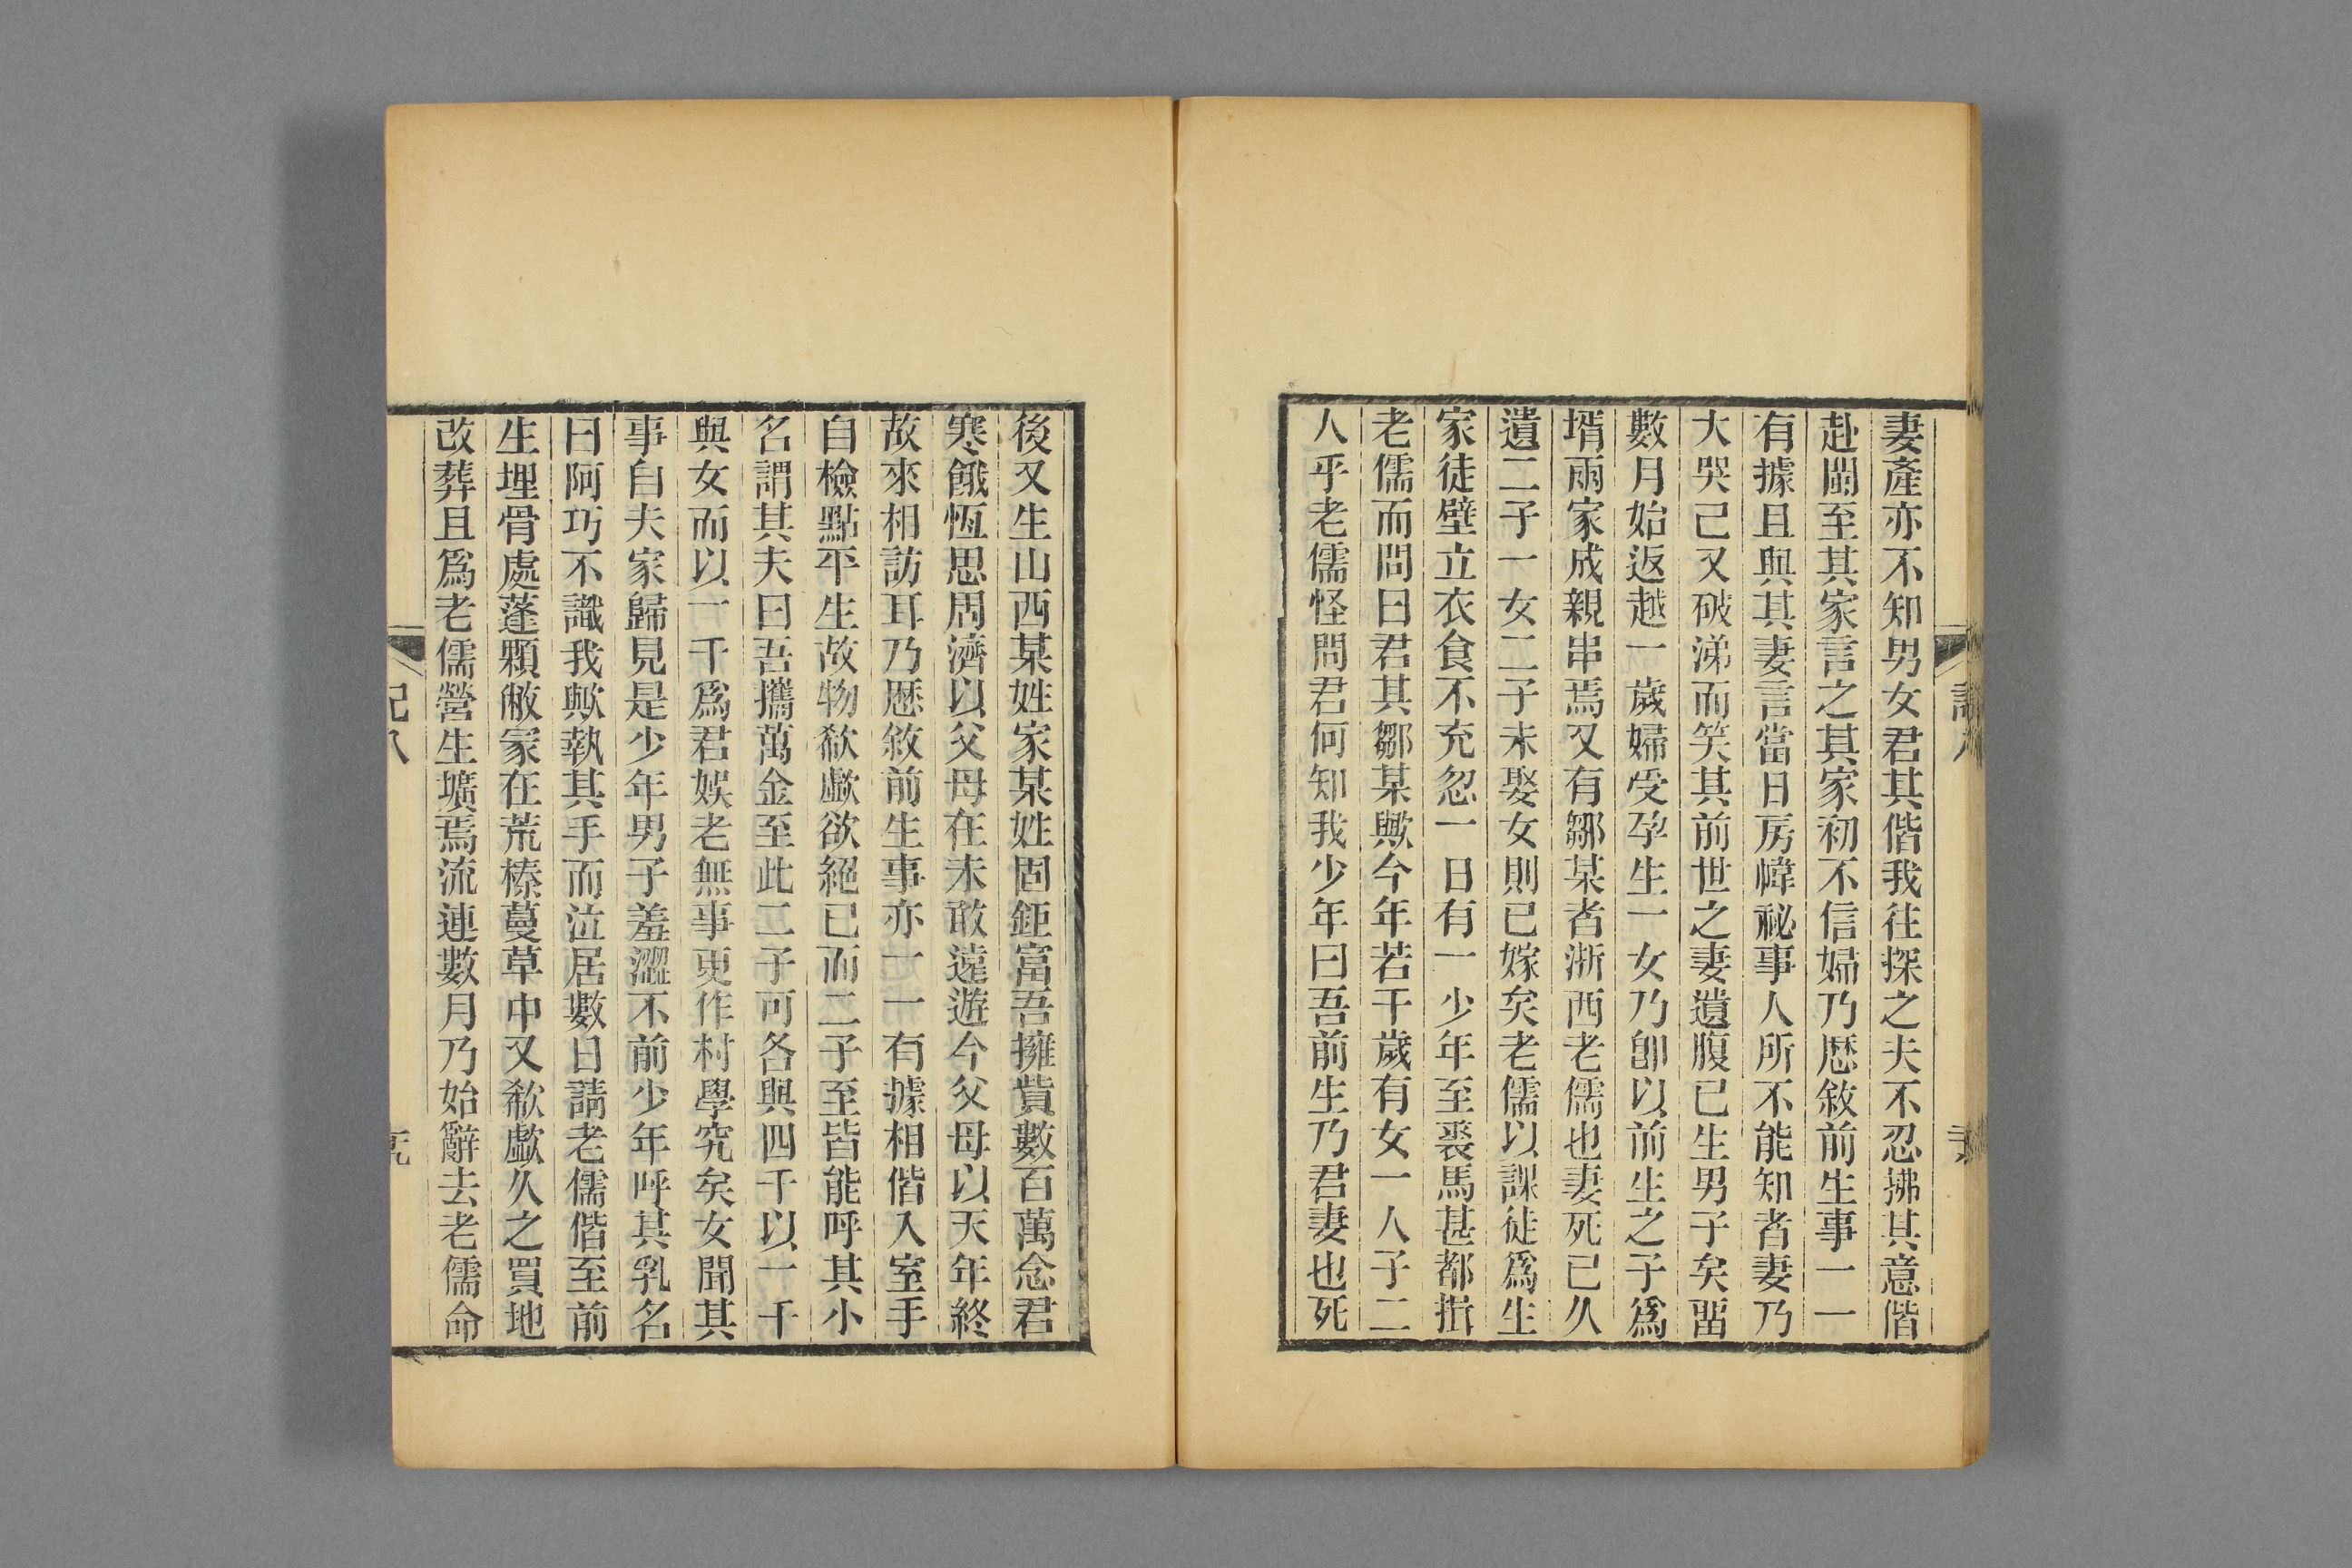 妻產亦不知男女君其偕我往探之夫不忍拂其意偕
赴閩至其家言之其家初不信婦乃歷敘前生事一一
有據且與其妻言當日房幃祕事人所不能知者妻乃
大哭已又破涕而笑其前世之妻遺腹已生男子矣留
數月始返越一歲婦受孕生一女乃卽以前生之子爲
壻兩家成親串焉又有鄒某者浙西老儒也妻死已久
遺二子一女二子未娶女則已嫁矣老儒以課徒爲生
家徒壁立衣食不充忽一日有一少年至裘馬甚都揖
老儒而問曰君其鄒某歟今年若干歲有女一人子二
人乎老儒怪問君何知我少年曰吾前生乃君妻也死
後又生山西某姓家某姓固鉅富吾擁貲數百萬念君
寒餓恆思周濟以父母在未敢遠遊今父母以天年終
故來相訪耳乃歷敘前生事亦一一有據相偕入室手
自檢點平生故物欷歔欲絕已而二子至皆能呼其小
名謂其夫曰吾攜萬金至此二子可各與四千以一千
與女而以一千爲君娛老無事更作村學究矣女聞其
事自夫家歸見是少年男子羞澀不前少年呼其乳名
曰阿巧不識我歟執其手而泣居數日請老儒偕至前
生埋骨處蓬顆敝冢在荒榛蔓草中又欷歔久之買地
改葬且爲老儒營生壙焉流連數月乃始辭去老儒命